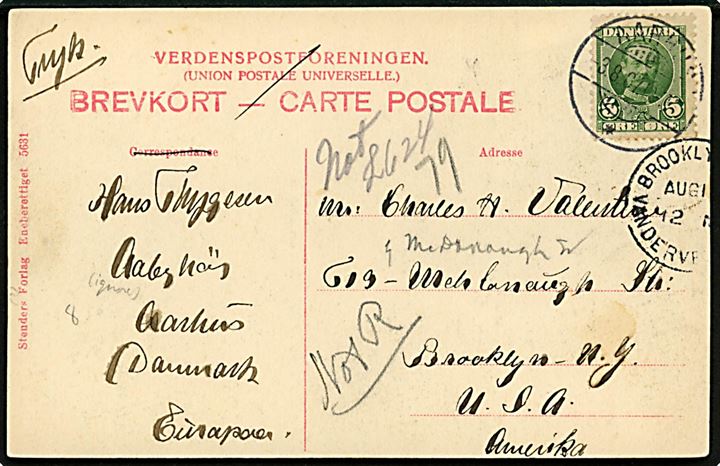 Tryk.
VERDENSPOSTFORENINGEN.
(UNION POSTALE UNIVERSELLE.)
BREVKORT — CARTE POSTALE
DANMARK
5 5
ØRE ØRE
BROOKLYN
AUG 1
12
VANDERVE
Correspondance
Adresse
Not
L624
79
Hans Thygesen
Aabyhöj
(ignore)
8
Aarhus
Danmark
Europa
Mr. Charles H. Valentine
4 McDonough St
613 - McDonaugh St:
Brooklyn - N. Y.
U. S. A.
Amerika
Not R
Stenders Forlag Eneberettiget 5631